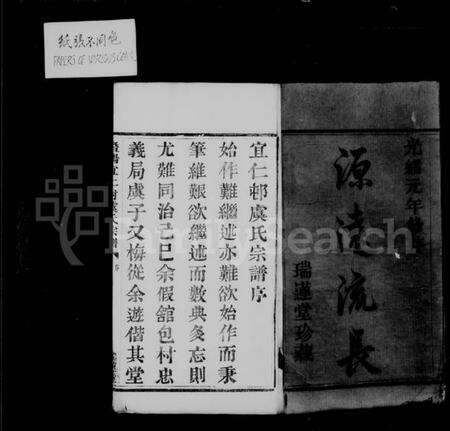 紙張不同色
PAPERS OF VARIOUS COLORS
光緒元年
源遠流長
瑞蓮堂珍藏
宜仁邨虞氏宗譜序
始作難繼述亦難欲始作而秉
筆維艱欲繼述而數典奚忘則
尤難同治己巳余假舘包村忠
義局虞子又梅從余遊偕其堂
FamilySearch